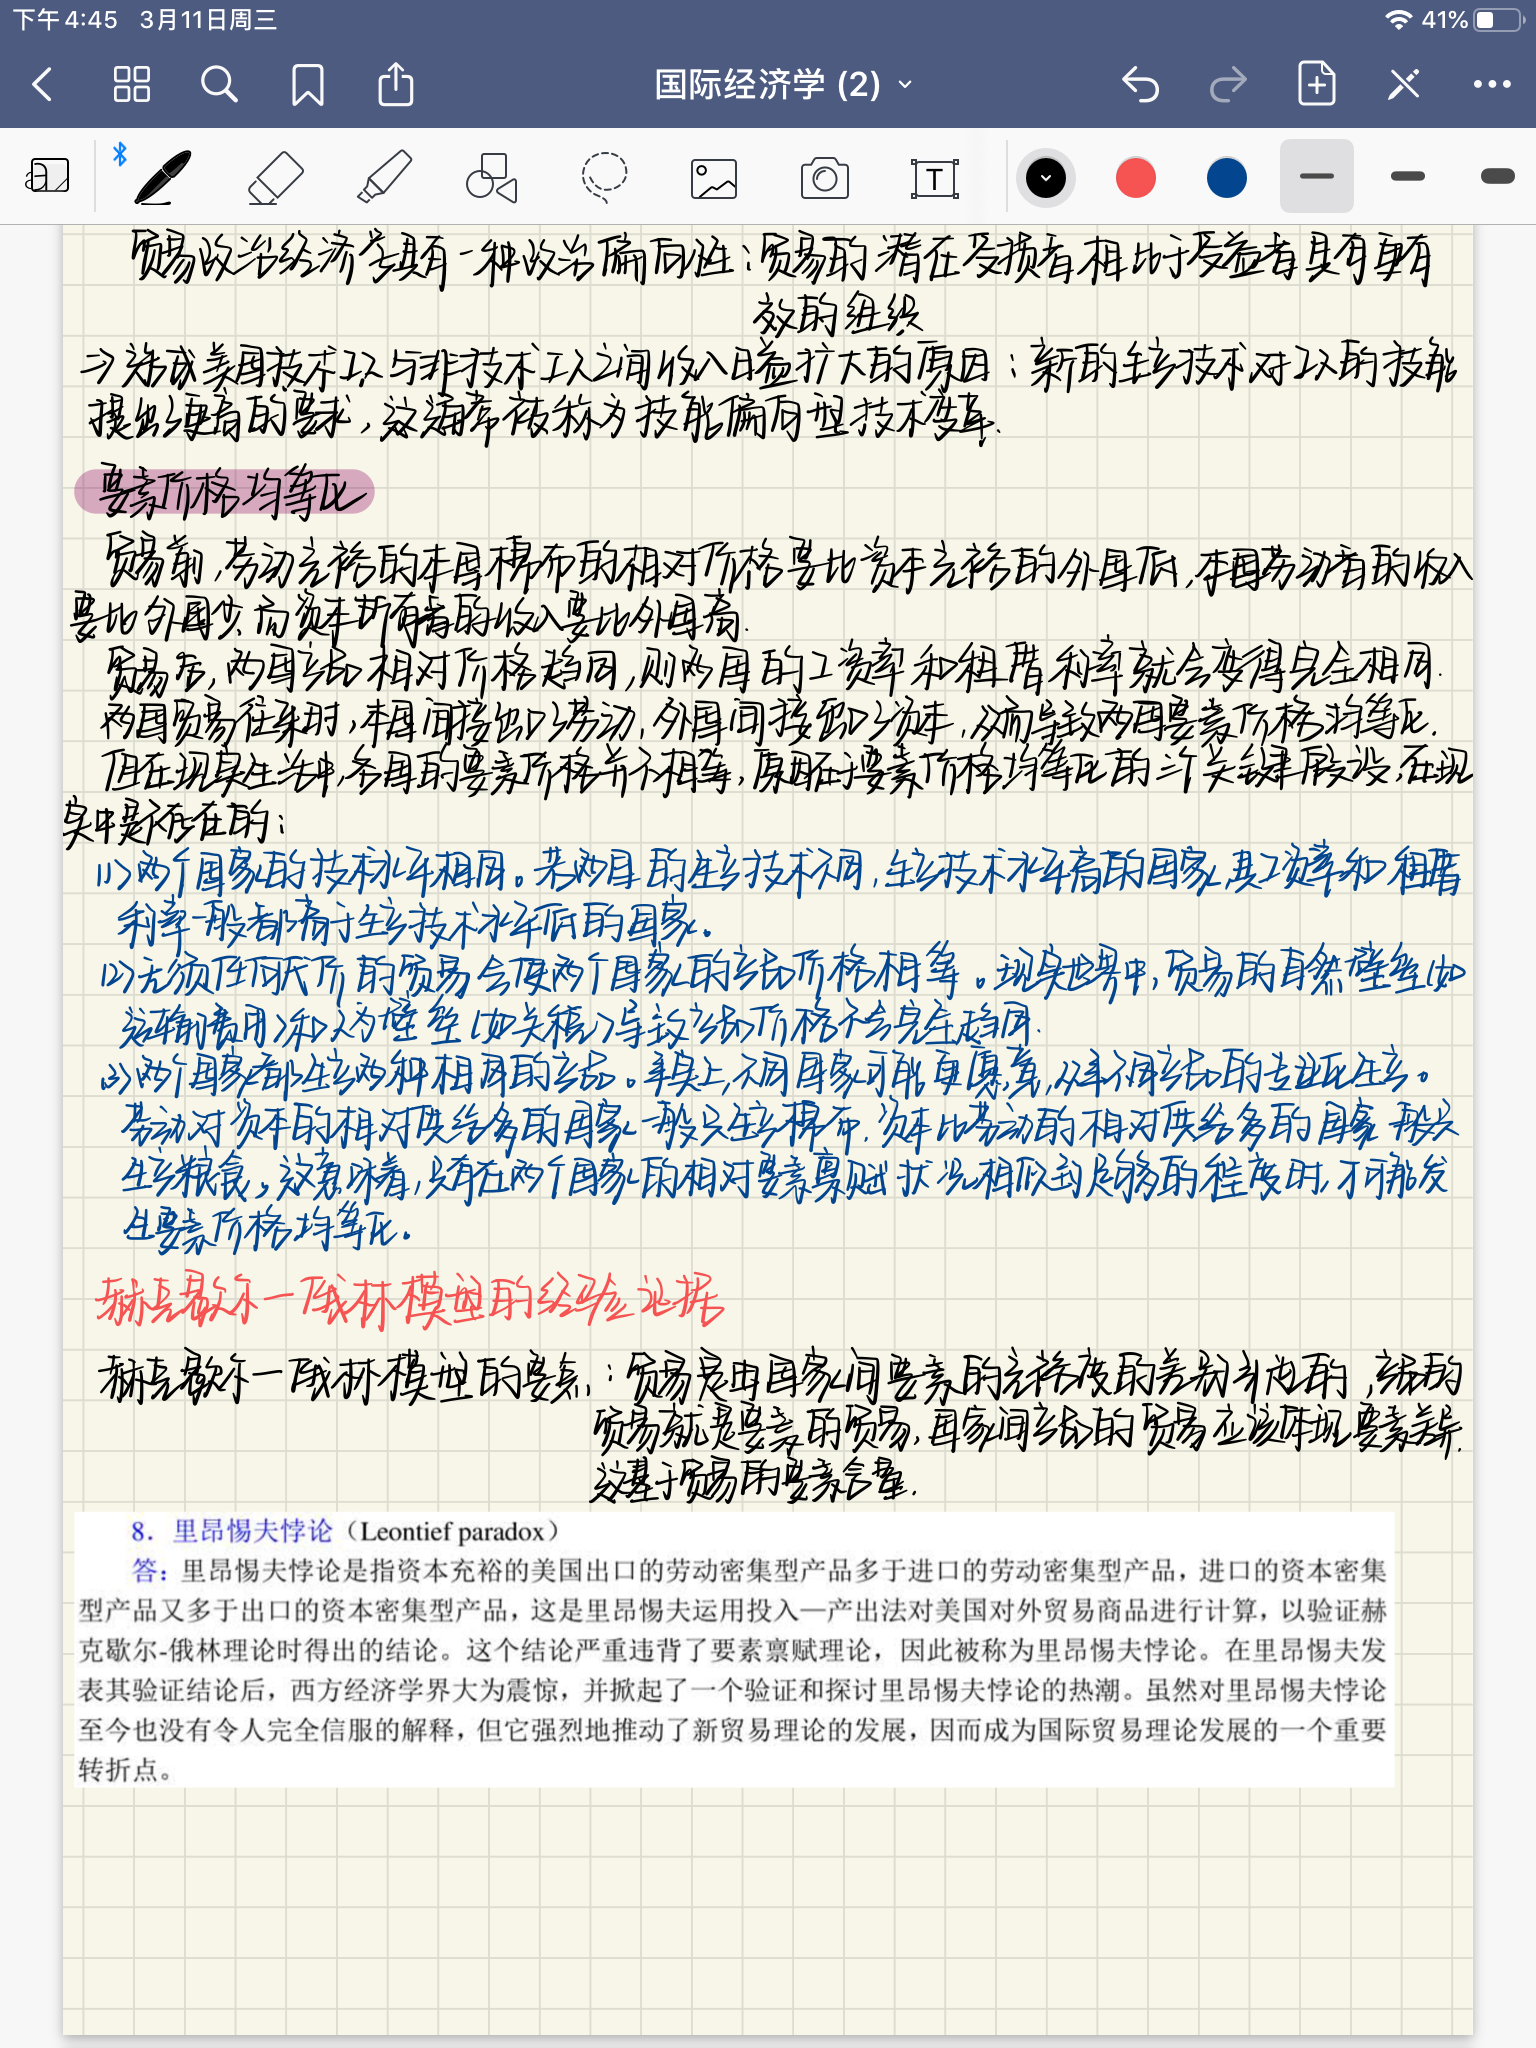 下午4:45 3月11日周三
41%
国际经济学 (2)
T
贸易政治经济学具有一种政治偏向性：贸易的潜在受损者相比于受益者具有更有
效的组织
⇒造成美国技术工人与非技术工人之间收入日益扩大的原因：新的生产技术对工人的技能
提出了更高的要求，这通常被称为技能偏向型技术变革.
要素价格均等化
贸易前，劳动充裕的本国棉布的相对价格要比资本充裕的外国低，本国劳动者的收入
要比外国少，而资本所有者的收入要比外国高.
贸易后，两国产品相对价格趋同，则两国的工资率和租借利率就会变得完全相同.
两国贸易往来时，本国间接出口了劳动，外国间接出口了资本，从而导致两国要素价格均等化.
但在现实生活中，各国的要素价格并不相等，原因在于要素价格均等化的三个关键假设，在现
实中是不存在的：
(1)两个国家的技术水平相同。若两国的生产技术不同，生产技术水平高的国家，其工资率和租借
利率一般都高于生产技术水平低的国家。
(2)无须任何代价的贸易会使两个国家的产品价格相等。现实世界中，贸易的自然壁垒(如
运输费用)和人为壁垒(如关税)导致产品价格不会完全趋同.
(3)两个国家都生产两种相同的产品。事实上，不同国家可能要素禀，从事不同产品的专业化生产。
劳动对资本的相对供给多的国家一般只生产棉布，资本比劳动的相对供给多的国家一般只
生产粮食。这意味着，只有在两个国家的相对要素禀赋状况相似到足够的程度时，才可能发
生要素价格均等化。
赫克歇尔一俄林模型的经验证据
赫克歇尔一俄林模型的要点：贸易是由国家间要素的充裕度的差别引起的，产品的
贸易就是要素的贸易，国家间产品的贸易应该体现要素差异.
这基于贸易的要素含量.
8．里昂惕夫悖论（Leontief paradox）
答：里昂惕夫悖论是指资本充裕的美国出口的劳动密集型产品多于进口的劳动密集型产品，进口的资本密集
型产品又多于出口的资本密集型产品，这是里昂惕夫运用投入—产出法对美国对外贸易商品进行计算，以验证赫
克歇尔-俄林理论时得出的结论。这个结论严重违背了要素禀赋理论，因此被称为里昂惕夫悖论。在里昂惕夫发
表其验证结论后，西方经济学界大为震惊，并掀起了一个验证和探讨里昂惕夫悖论的热潮。虽然对里昂惕夫悖论
至今也没有令人完全信服的解释，但它强烈地推动了新贸易理论的发展，因而成为国际贸易理论发展的一个重要
转折点。